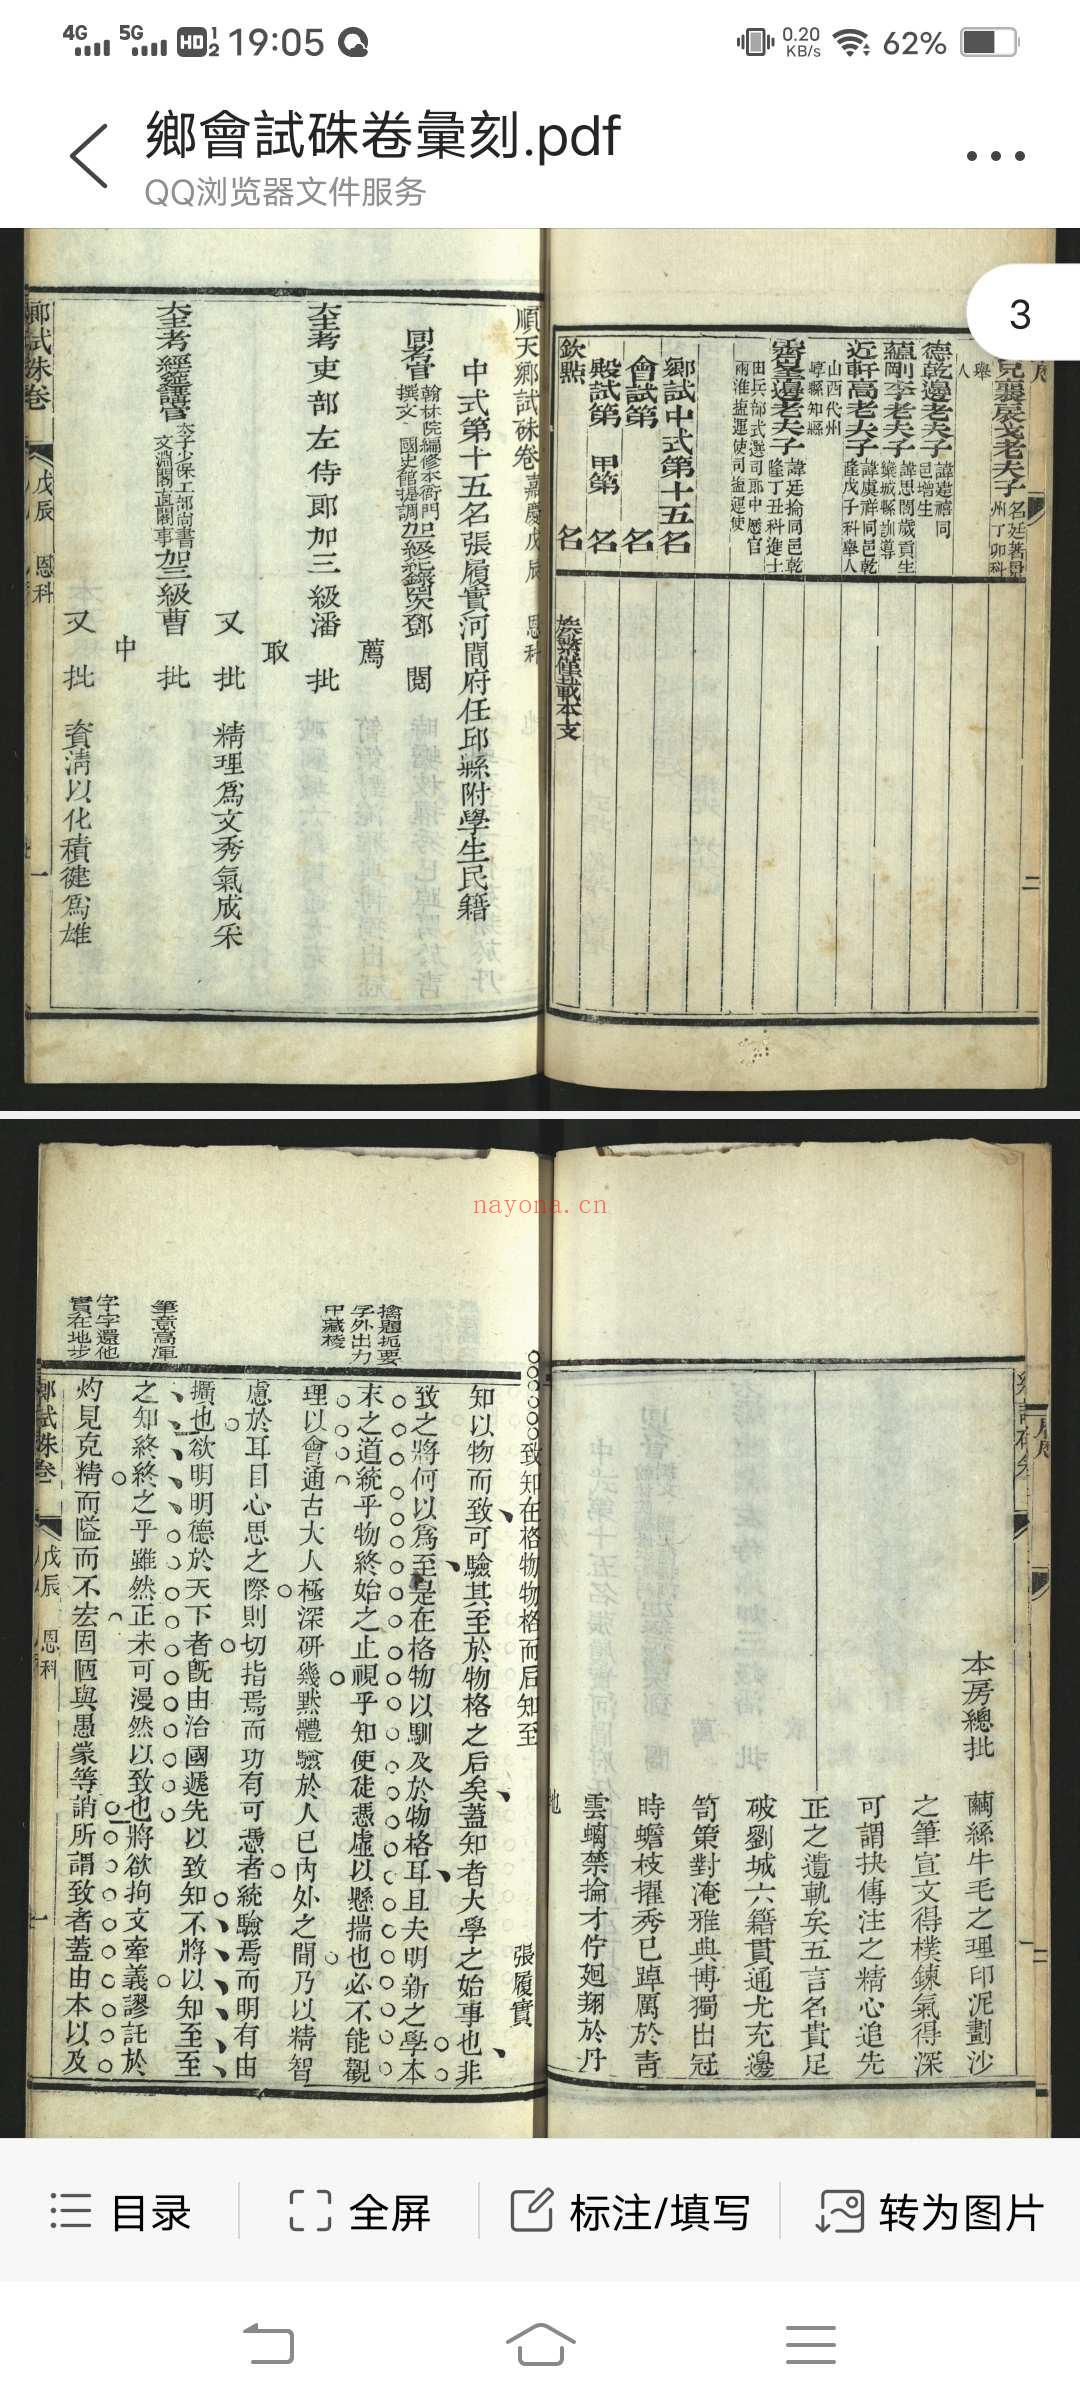 4G 5G HD 1 2 19:05 0.20 KB/s 62%
鄉會試硃卷彙刻.pdf
QQ浏览器文件服务
3
德乾邊老夫子 諱建禧同邑增生
蘊剛李老夫子 諱思閻歲貢生欒城縣訓導
近軒高老夫子 諱虞祥同邑乾隆戊子科舉人
山西代州崞縣知縣
霽峯邊老夫子 諱廷掄同邑乾隆丁丑科進士
田兵部武選司郎中歷官兩淮鹽運使司鹽運使
鄉試中式第十五名
會試第 名
殿試第 甲第 名
欽點
族繁僅載本支
二
順天鄉試硃卷 嘉慶戊辰 恩科
中式第十五名張履實河間府任邱縣附學生民籍
同考官 翰林院編修本衙門撰文 國史館提調加級紀錄 鄧 閱
薦
大主考吏部左侍郎加三級潘 批
取
又批 精理爲文秀氣成采
大主考經筵講官太子少保工部尚書文淵閣直閣事加三級曹 批
中
又批 資清以化積健爲雄
鄉試硃卷 戊辰 恩科 一
nayona.cn
本房總批 繭絲牛毛之理印泥劃沙
之筆宣文得樸鍊氣得深
可謂抉傳注之精心追先
正之遺軌矣五言名貴足
破劉城六籍貫通尤充邊
笥策對淹雅典博獨出冠
時蟾枝擢秀已踔厲於青
雲螭禁掄才佇廻翔於丹
地
二
致知在格物物格而后知至
張履實
知以物而致可驗其至於物格之后矣蓋知者大學之始事也非
致之將何以爲至是在格物以馴及於物格耳且夫明新之學本
末之道統乎物終始之止視乎知使徒憑虛以懸揣也必不能觀
理以會通古大人極深研幾默體驗於人已內外之間乃以精智
慮於耳目心思之際則切指焉而功有可憑者統驗焉而明有由
擴也欲明明德於天下者旣由治國遞先以致知不將以知至至
之知終終之乎雖然正未可漫然以致也將欲拘文牽義謬託於
灼見克精而隘而不宏固陋與愚蒙等誚所謂致者蓋由本以及
擒題扼要
字外出力
中藏棱
筆意高渾
字字還他
實在地步
鄉試硃卷 戊辰 恩科 一
目录
全屏
标注/填写
转为图片